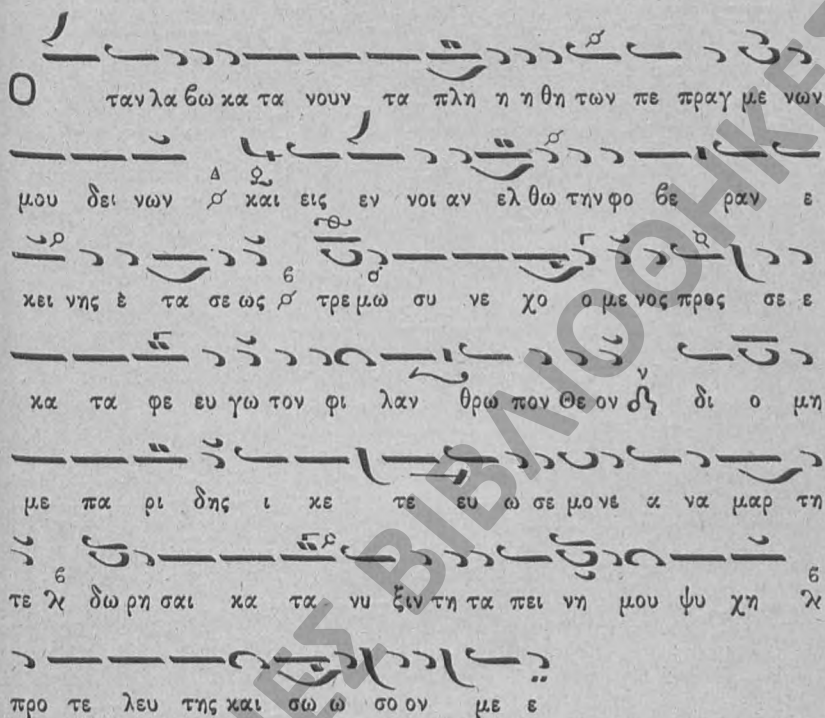 Ο ταν λα βω κα τα νουν τα πλη η η θη των πε πραγ με νων
μου δει νων Δ και εις εν νοι αν ελ θω την φο βε ραν ε
κει νης ε τα σε ως β τρε μω συ νε χο ο με νος προς σε ε
κα τα φε ευ γω τον φι λαν θρω πον Θε ον ν δι ο μη
με πα ρι δης ι κε τε ευ ω σε μο νε α να μαρ τη
τε β δω ρη σαι κα τα νυ ξιν τη τα πει νη μου ψυ χη β
προ τε λευ της και σω ω σο ον με ε
ΕΣ ΒΙΒΛΙΟΘΗΚΕΣ